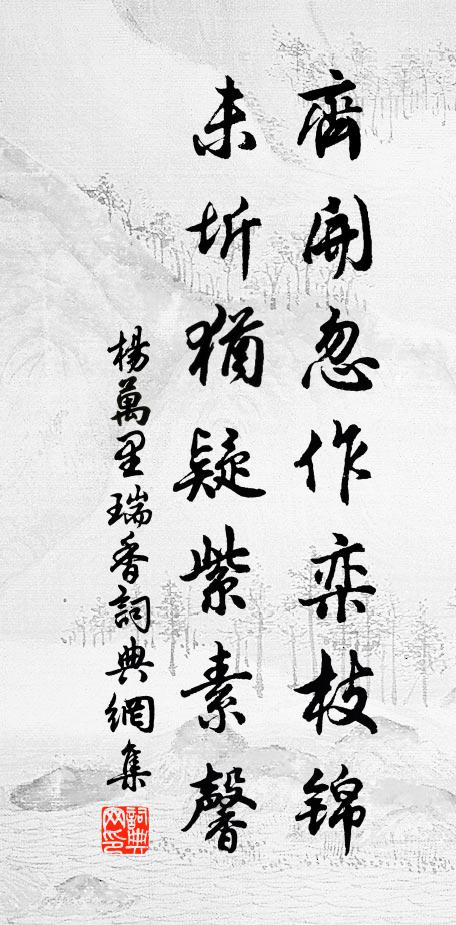 齊開忽作栾枝锦
未坼猶疑紫素馨
楊萬里瑞香詞典網集
詞典网印